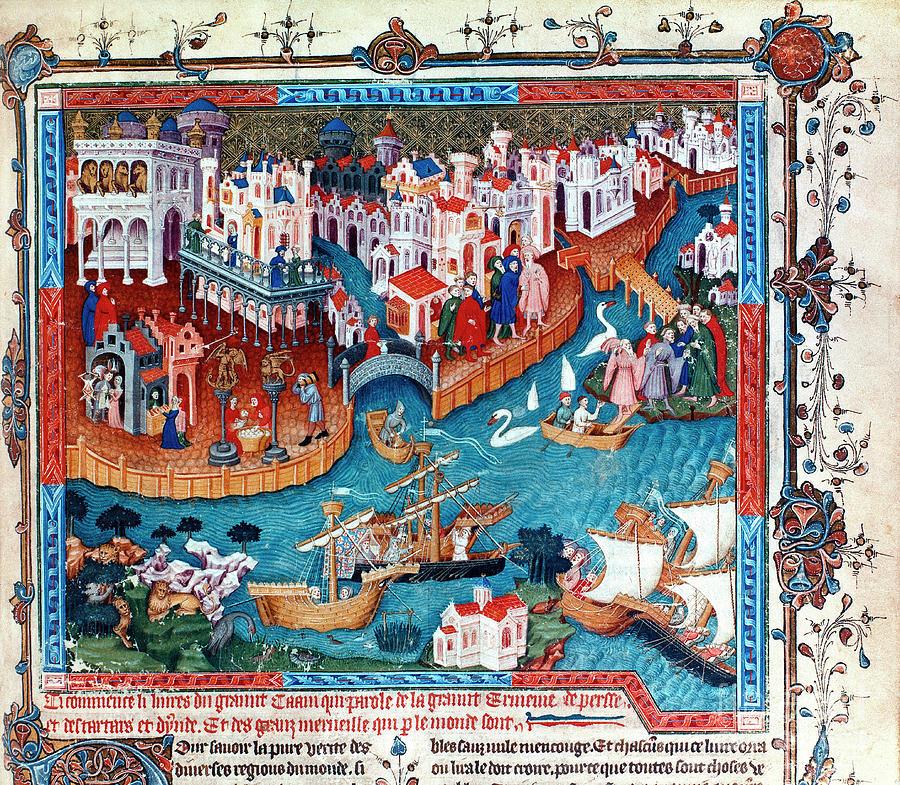 Ci commence li liures du graunt Caam qui parole de la graunt Ermenie de persse
et des tartars et dynde. Et des granz merueille qui p le monde sont
Pour sauoir la pure verite des
diuerses regions du monde. si
bles sanz nule mencouge. Et chascuns qui ce liure orra
ou lira le doit croire. pour ce que toutes sont choses ve